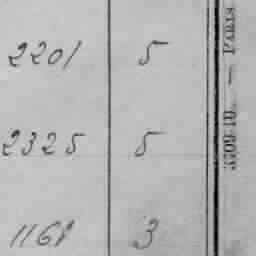 2201 5
2325 5
1168 3
5709-10. — PARIS